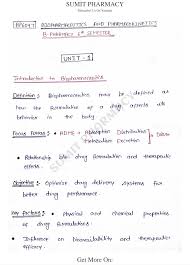 SUMIT PHARMACY
BP604T BIOPHARMACEUTICS AND PHARMACOKINETICS
B. PHARMACY 6th SEMESTER
UNIT - 1
Introduction to Biopharmaceutics
Definition : Biopharmaceutics may be defined as
how the formulation of a drug affects its
behavior in the body.
Focus Areas : • ADME → Absorption Distribution
Metabolism Excretion
• Relationship b/w drug formulation and therapeutic
effects.
Objective : Optimise drug delivery systems for
better drug performance.
Key Factors : • Physical and chemical properties
of drug formulations.
• Influence on Bioavailability and therapeutic
efficacy.
SUMIT PHARMACY
Get More On: